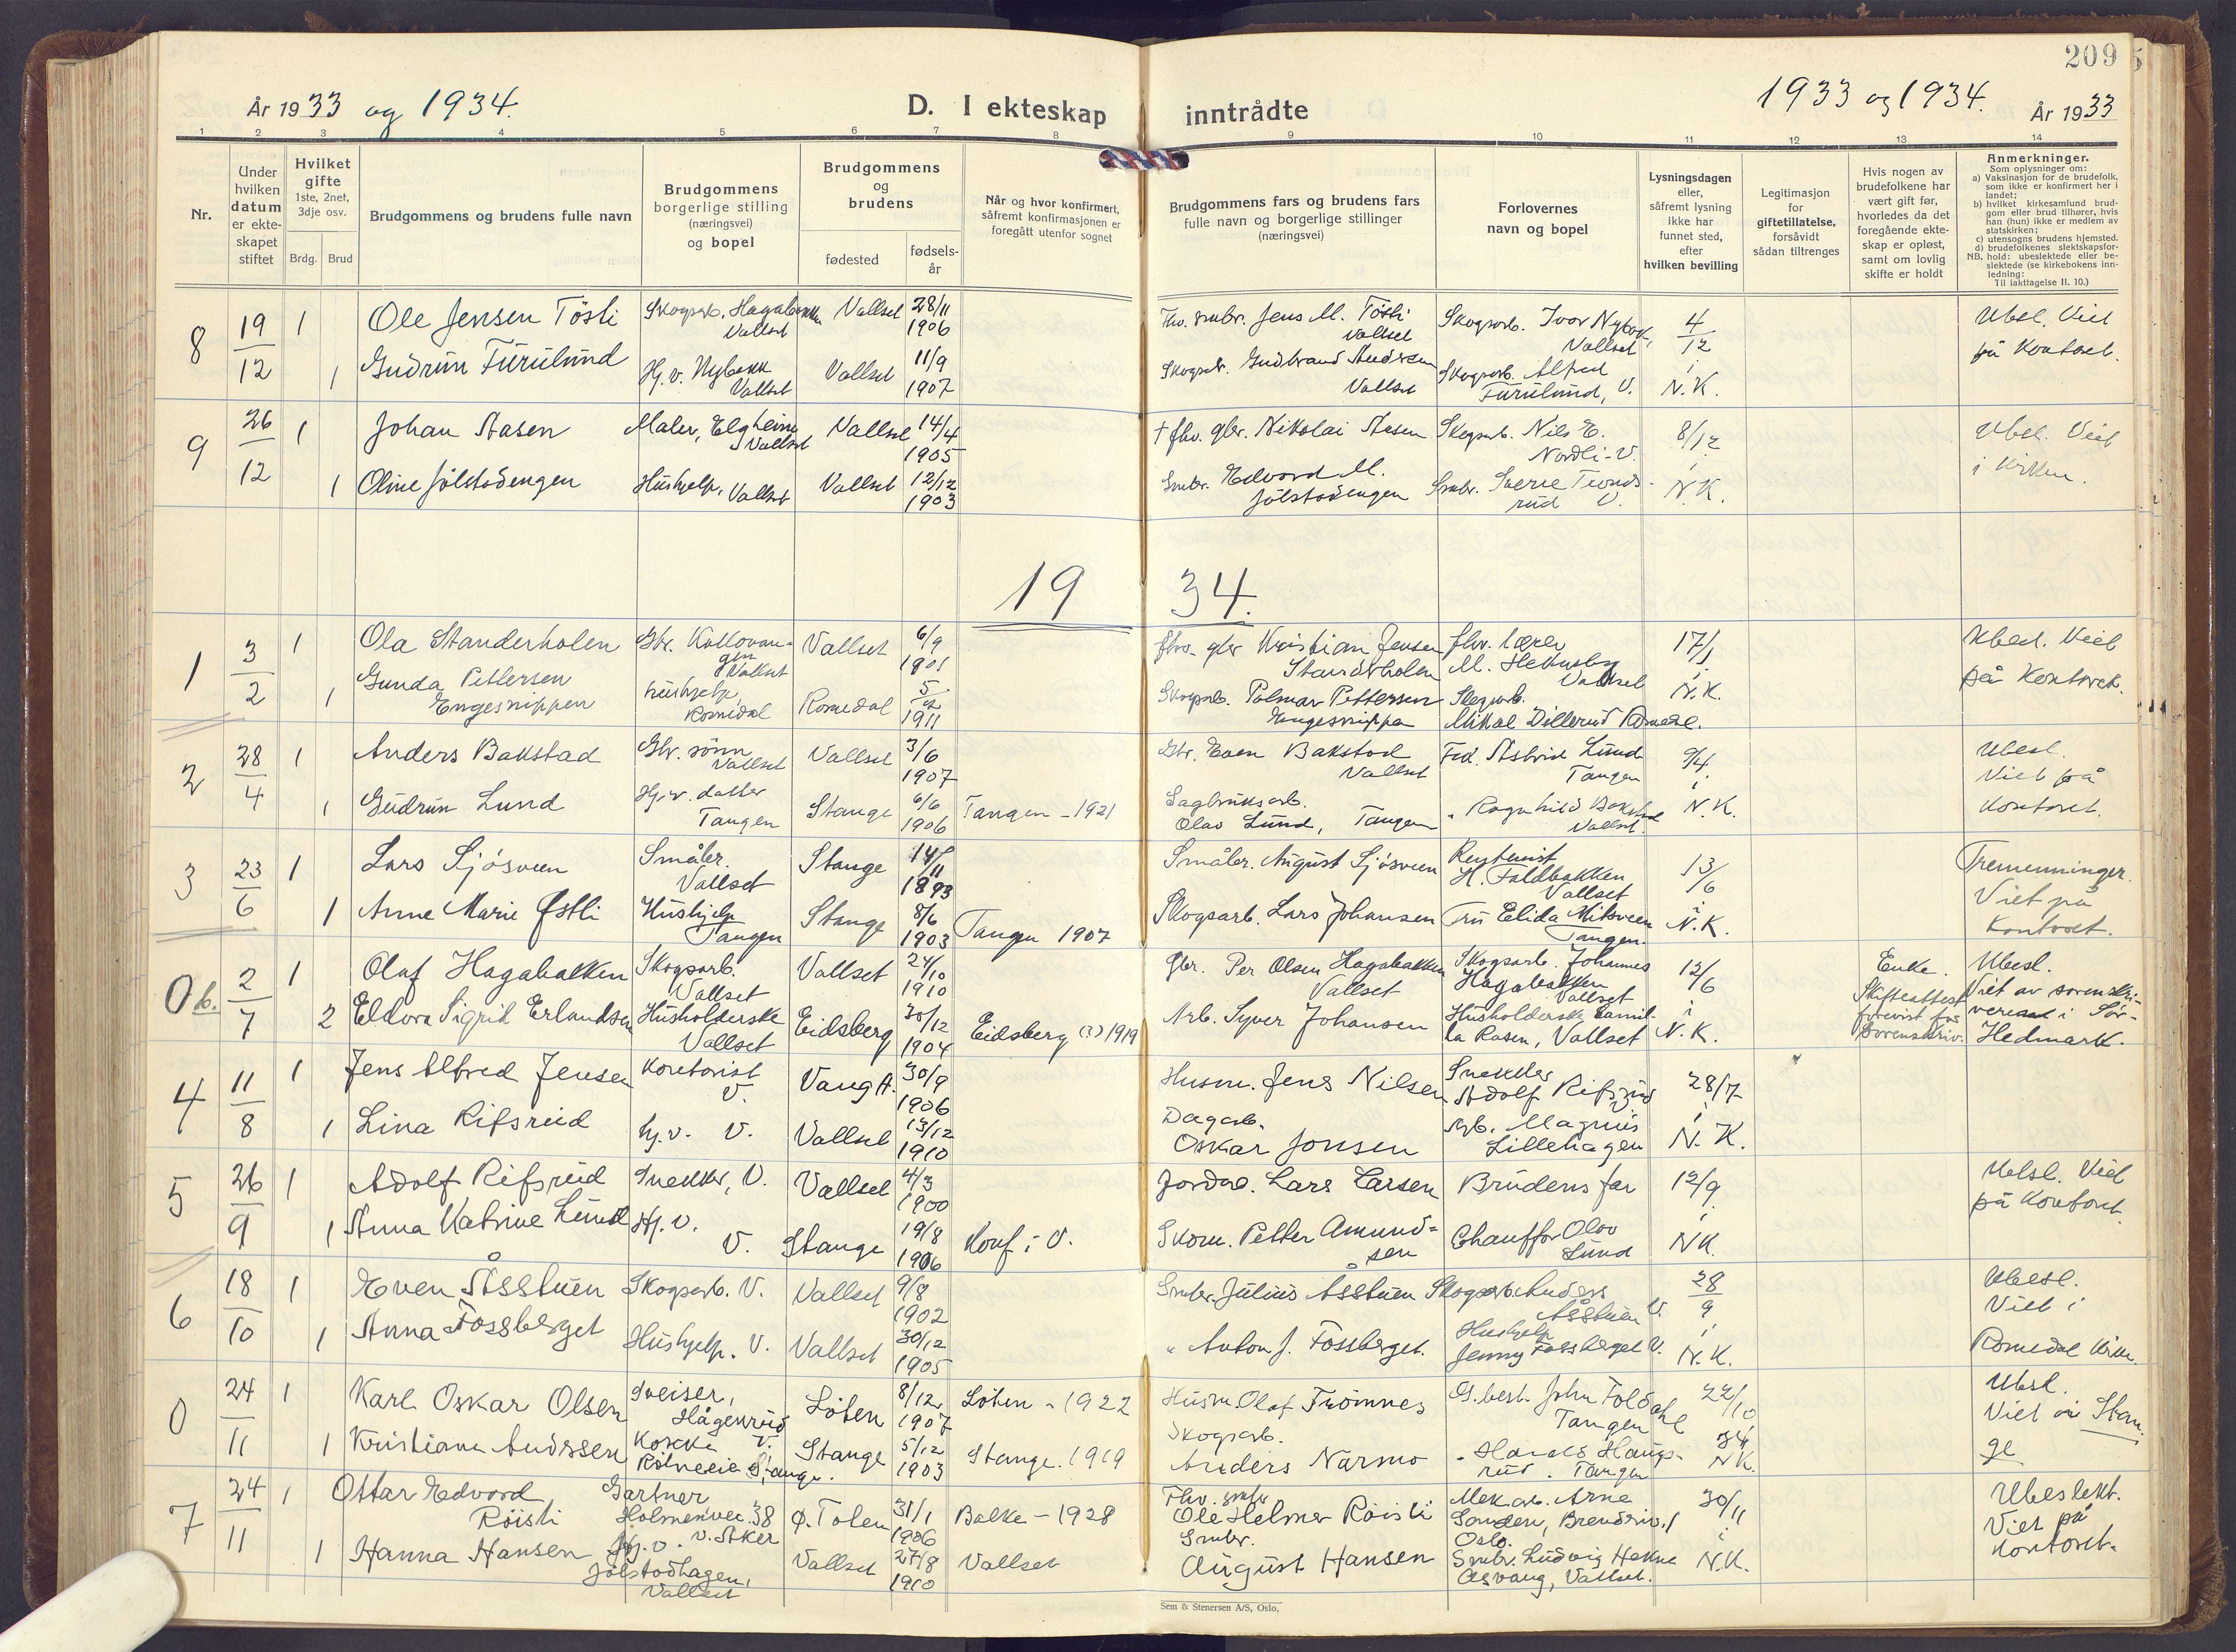 209
År 1933 og 1934.
D. I ekteskap inntrådte
1933 og 1934.
År 1933
1 2 3 4 5 6 7 8 9 10 11 12 13 14
Nr.
Under hvilken datum er ekte-skapet stiftet
Hvilket gifte 1ste, 2net, 3dje osv.
Brdg. Brud
Brudgommens og brudens fulle navn
Brudgommens borgerlige stilling (næringsvei) og bopel
Brudgommens og brudens
fødested
fødsels-år
Når og hvor konfirmert, såfremt konfirmasjonen er foregått utenfor sognet
Brudgommens fars og brudens fars fulle navn og borgerlige stillinger (næringsvei)
Forlovernes navn og bopel
Lysningsdagen eller, såfremt lysning ikke har funnet sted, efter hvilken bevilling
Legitimasjon for giftetillatelse, forsåvidt sådan tiltrenges
Hvis nogen av brudefolkene har vært gift før, hvorledes da det foregående ekte-skap er opløst, samt om lovlig skifte er holdt
Anmerkninger.
Som oplysninger om:
a) Vaksinasjon for de brudefolk, som ikke er konfirmert her i landet;
b) hvilket kirkesamfund brud-gom eller brud tilhører, hvis han (hun) ikke er medlem av statskirken;
c) utensogns brudens hjemsted.
d) brudefolkenes slektskapsfor-hold: ubeslektede eller be-slektede (se kirkebokens inn-ledning:
NB.
Til iakttagelse II. 10.)
8 19/12 1 Ole Jensen Tösti Skogsarb. Hagabakken Vallset Vallset 28/11 1906 Fhv. smbr. Jens M. Tösti Vallset Skogsarb. Ivar Nybak, Vallset 4/12 i N.K. Ubesl. Viet på Kontoret.
1 Gudrun Furulund Hj.v. Nybakk Vallset Vallset 11/9 1907 Skogsarb. Gudbrand Andersen Vallset Skogsarb. Alfred Furulund, V.
9 26/12 1 Johan Aasen Maler, Elgheim Vallset Vallset 14/4 1905 † fhv. gbr. Nikolai Aasen Skogsarb. Nils E. Nordli - V. 8/12 i N.K. Ubesl. Viet i kirken.
1 Oline Jölstadengen Hushjelp, Vallset Vallset 12/12 1903 Smbr. Edvard M. Jölstadengen Smbr. Sverre Tronds-rud V.
19 34.
1 3/2 1 Ola Standerholen Gbr. Vallset Vallset 6/9 1901 fhv. gbr Kristian Jensen Standerholen fhv. lærer M. Hekneby Vallset 17/1 i N.K. Ubesl. Viet på Kontoret.
1 Gunda Pettersen Engesnippen hushjelp, Romedal Romedal 5/2 1911 Skogsarb. Palmar Pettersen Engesnippen Skogsarb. Mikal Dillerud Romedal.
2 28/4 1 Anders Bakstad Gbr. sönn Vallset Vallset 3/6 1907 Gbr. Even Bakstad Vallset Frk. Astrid Lund Tangen 9/4 i N.K. Ubesl. Viet på kontoret.
1 Gudrun Lund Hj.v. datter Tangen Stange 6/6 1906 Tangen - 1921 Sagbruksarb. Olav Lund, Tangen " Ragnhild Bakstad Vallset.
3 23/6 1 Lars Sjösveen Småbr. Vallset Stange 14/11 1893 Småbr. August Sjösveen Rentenist H. Faldbakken Vallset 13/6 i N.K. Tremenninger. Viet på Kontoret.
1 Anne Marie Østli Hushjelp Tangen Stange 8/6 1903 Tangen 1907 Skogsarb. Lars Johansen Fru Elida Mitsveen Tangen.
0b. 2/7 1 Olaf Hagabakken Skogsarb. Vallset Vallset 24/10 1910 Gbr. Per Olsen Hagabakken Vallset Skogsarb. Johannes Hagabakken Vallset 12/6 i N.K. Ubesl. Viet av sorenskri-veren i Sör-Hedmark.
2 Eldora Sigrid Erlandsen Husholderske Vallset Eidsberg 30/12 1904 Eidsberg (?) 1919 Arb. Syver Johansen Husholderske Kamil-la Rasen, Vallset Enke. Skifteattest forevist for Sorenskriv.
4 11/8 1 Jens Alfred Jensen Kontorist V. Vang H. 30/9 1906 Husm. Jens Nilsen Snekker Adolf Rifsrud 28/7 i N.K.
1 Lina Rifsrud hj.v. V. Vallset 13/12 1910 Dagarb. Oskar Jonsen Arb. Magnus Lillehagen
5 26/9 1 Adolf Rifsrud Snekker, V. Vallset 4/3 1900 Jordarb. Lars Larsen Brudens far 12/9 i NK. Ubesl. Viet på Kontoret.
1 Anna Katrine Lund Hj.v. V. Stange 19/8 1906 Konf i V. Skom. Petter Amund-sen Chauffør Olav Lund
6 18/10 1 Even Åsstuen Skogsarb. V. Vallset 9/8 1902 Smbr. Julius Åsstuen Skogsarb. Anders Åsstuen V. 28/9 i N.K. Ubesl. Viet i Romedal kirke.
1 Anna Fossberget Hushjelp. V. Vallset 30/12 1905 " Anton J. Fossberget. Hushjelp Jenny Fossberget V.
0 24/11 1 Karl Oskar Olsen Sveiser, Hågenrud V. Löten 8/12 1907 Löten - 1922 Husm. Olaf Frömnes G.best. John Foldahl Tangen 22/10 34 NK. Ubesl. Viet i Stange
1 Kristiane Anderssen Kokke Stange. Stange 5/12 1903 Stange. 1919 Skogsarb. Anders Narmo " Harald Haugs-rud. Tangen
7 24/11 1 Ottar Edvard Röisli Gartner Holmenvei. 38 V. Aker Ø. Toten 31/1 1906 Balke - 1928 Fhv. smbr Ole Helmer Röisli Mek.arb. Arne Sanden, Brendsrv. 1 Oslo. 30/11 i N.K. Ubeslekt. Viet på kontoret.
1 Hanna Hansen Hj.v. Jölstadhagen, Vallset Vallset 27/8 1910 Vallset Smbr. August Hansen Smbr. Ludvig Hekne Åsvang, Vallset.
Sem & Stenersen A/S, Oslo.